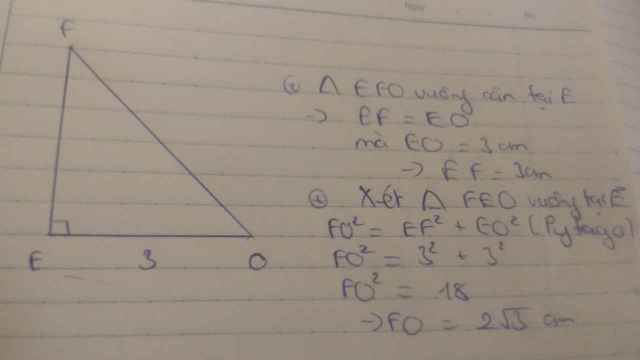 F
E 3 O
Δ EFO vuông cân tại E
→ EF = EO
mà EO = 3 cm
→ EF = 3cm
Xét Δ FEO vuông tại E
FO² = EF² + EO² (Pytago)
FO² = 3² + 3²
FO² = 18
→ FO = 2√3 cm